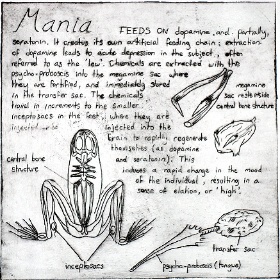 Mania
FEEDS ON dopamine, and, partially,
seratonin. It creates its own artificial feeding chain; extraction
of dopamine leads to acute depression in the subject, often
referred to as the 'low'. Chemicals are extracted with the
psycho-proboscis into the megamine sac where
they are fortified, and immediately stored
in the transfer sac. The chemicals
travel in increments to the smaller
inceptosacs in the feet, where they are
injected
injected into the
brain to rapidly regenerate
themselves (as dopamine
and seratonin). This
induces a rapid change in the mood
of the individual, resulting in a
sense of elation, or 'high'.
megamine
sac rests inside
central bone structure
central bone
structure
inceptosacs
transfer sac
psycho-proboscis (tongue)